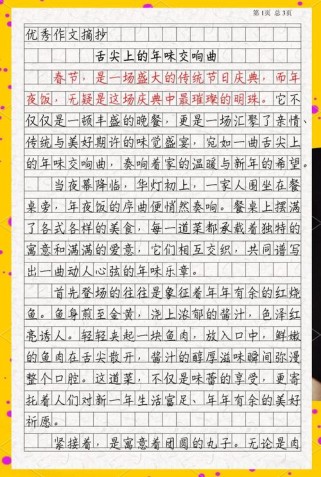 第1页 总3页
优秀作文摘抄
舌尖上的年味交响曲
春节，是一场盛大的传统节日庆典，而年
夜饭，无疑是这场庆典中最璀璨的明珠。它不
仅仅是一顿丰盛的晚餐，更是一场汇聚了亲情、
传统与美好期许的味觉盛宴，宛如一曲舌尖上
的年味交响曲，奏响着家的温暖与新年的希望。
当夜幕降临，华灯初上，一家人围坐在餐
桌旁，年夜饭的序曲便悄然奏响。餐桌上摆满
了各式各样的美食，每一道菜都承载着独特的
寓意和满满的爱意，它们相互交织，共同谱写
出一曲动人心弦的年味乐章。
首先登场的往往是象征着年年有余的红烧
鱼。鱼身煎至金黄，浇上浓郁的酱汁，色泽红
亮诱人。轻轻夹起一块鱼肉，放入口中，鲜嫩
的鱼肉在舌尖散开，酱汁的醇厚滋味瞬间弥漫
整个口腔。这道菜，不仅是味蕾的享受，更寄
托着人们对新一年生活富足、年年有余的美好
祈愿。
紧接着，是寓意着团圆的丸子。无论是肉